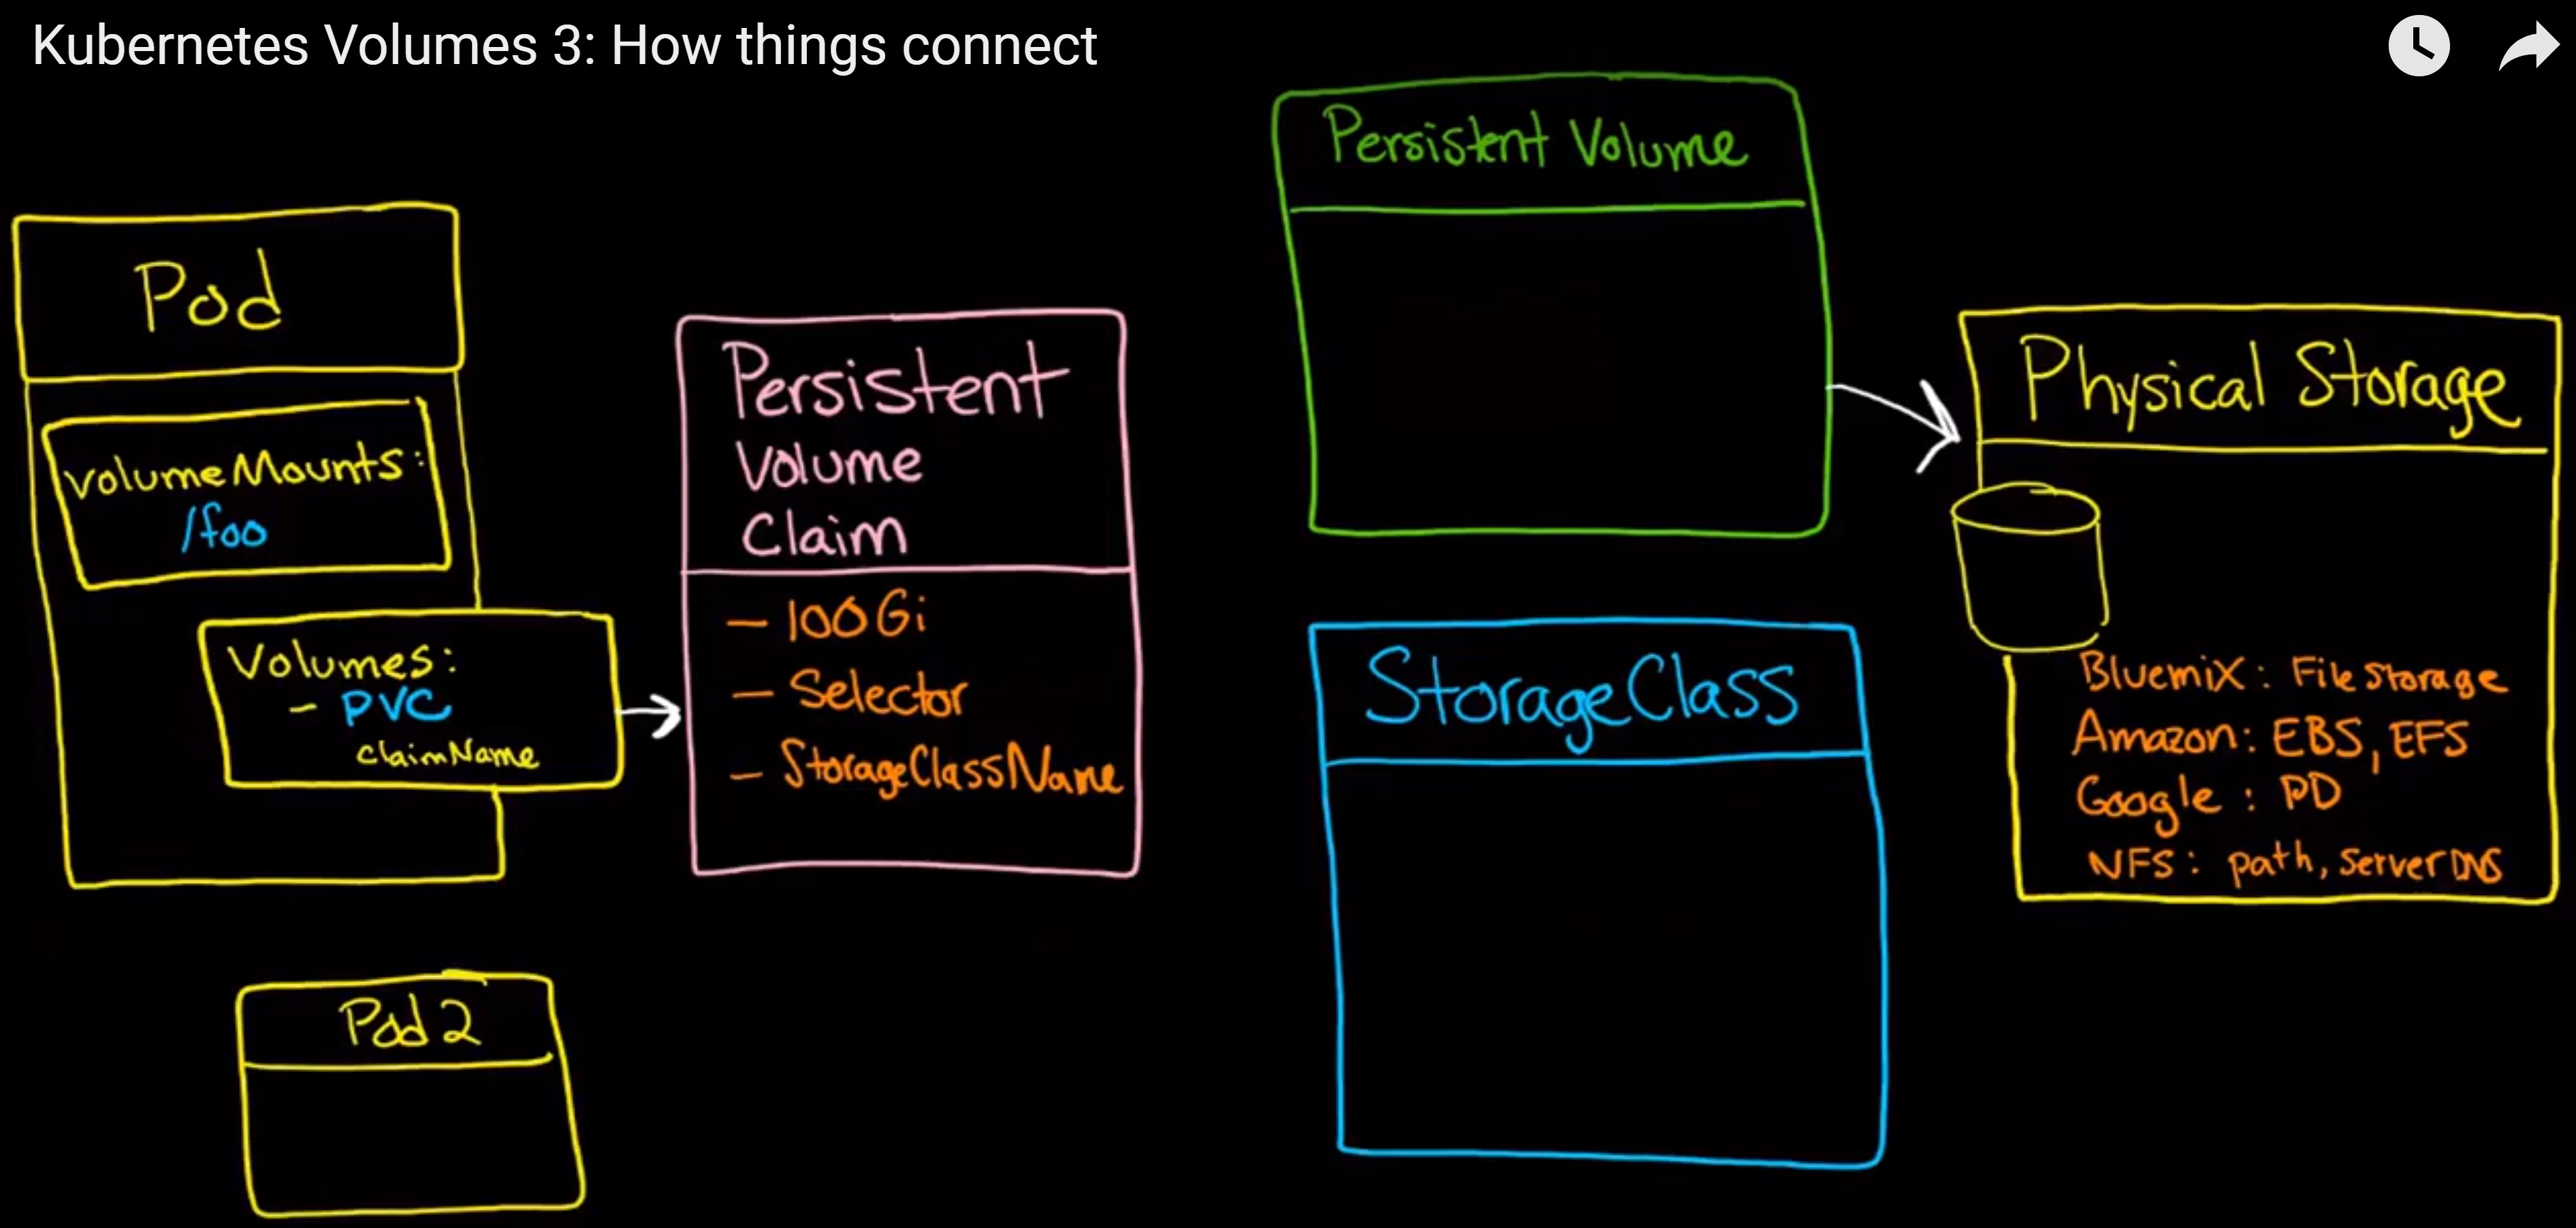 Kubernetes Volumes 3: How things connect
Pod
volumeMounts:
/foo
Volumes:
- PVC
claimName
Pod 2
Persistent
Volume
Claim
- 100Gi
- Selector
- StorageClassName
Persistent Volume
StorageClass
Physical Storage
Bluemix: File Storage
Amazon: EBS, EFS
Google: PD
NFS: path, Server DNS